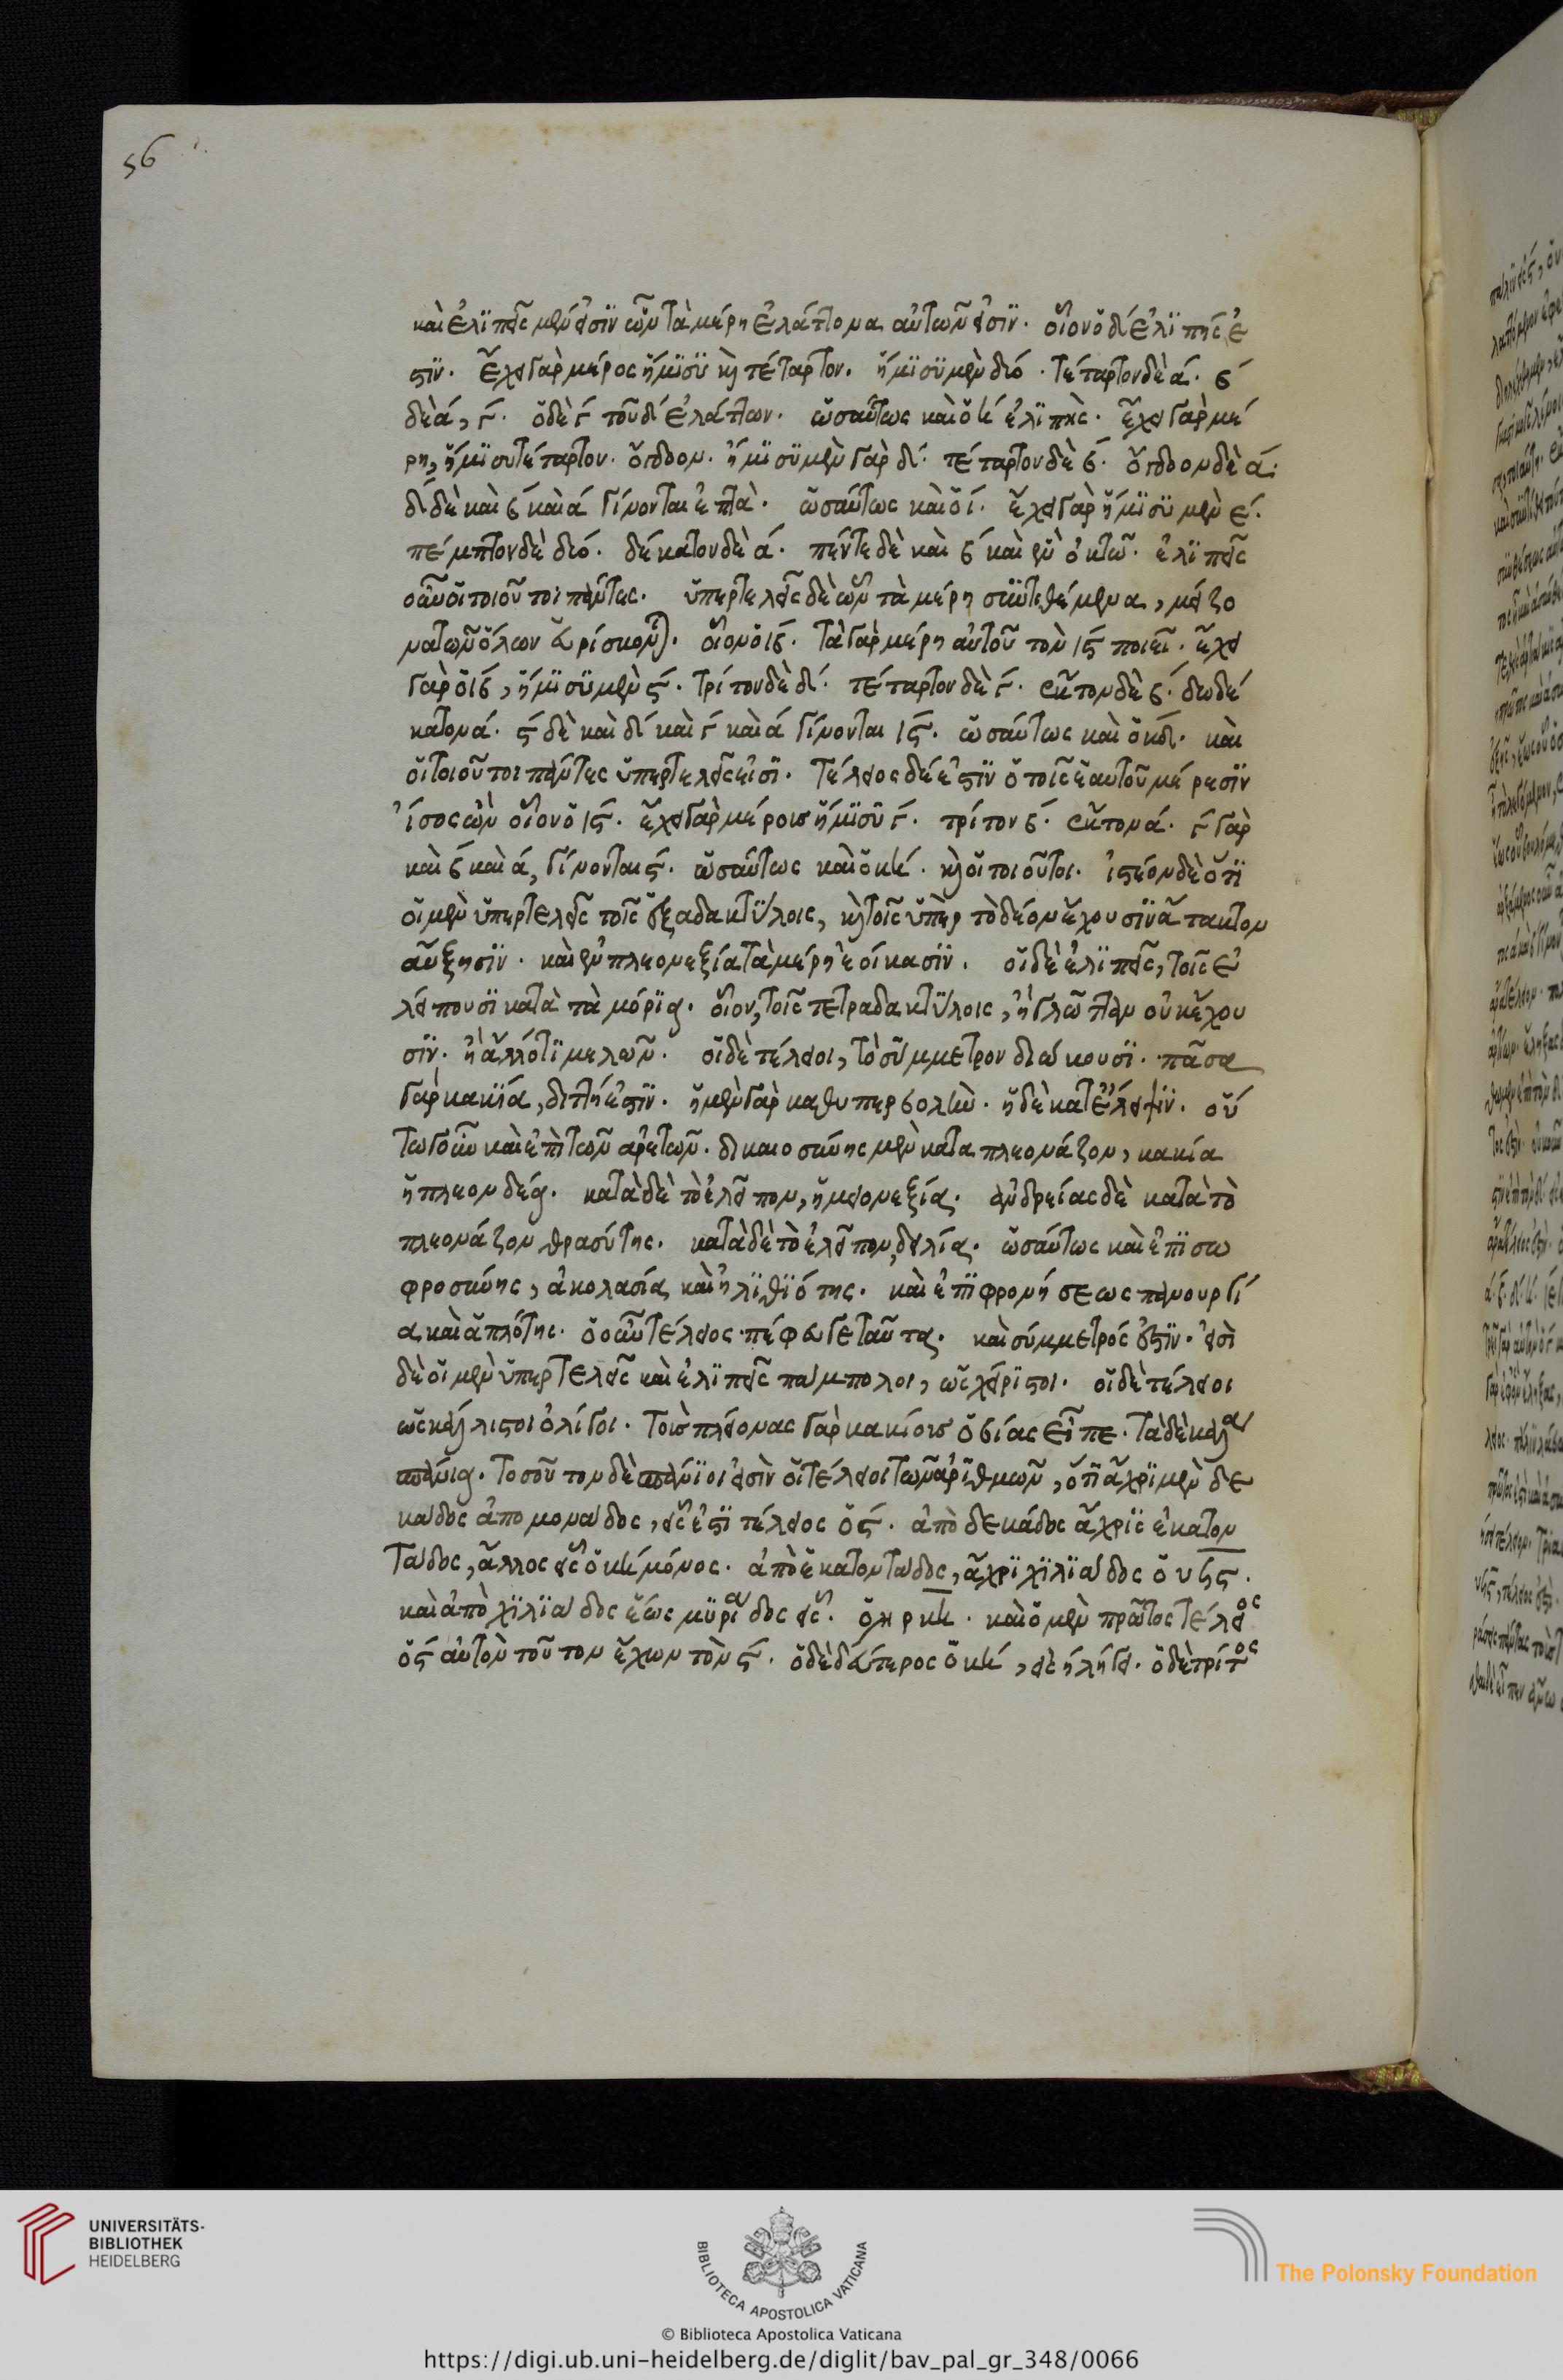 56
καὶ ἐλϊπεῖς μὲν εἰσϊν ὧν τὰ μέρη ἐλάττονα αὐτῶν εἰσϊν. οἷον ὁ δ́ ἐλϊπής ἐ
στϊν. ἔχει γὰρ μέρος ἥμϊσϋ καὶ τέταρτον. ἥμϊσϋ μὲν δύο. τέταρτον δὲ ά. β́
δὲ ά, γ́. ὁ δὲ γ́ τοῦ δ́ ἐλάττων. ὡσαύτως καὶ ὁ ή ἐλϊπὴς. ἔχει γὰρ μέ
ρη, ἥμϊσυ τέταρτον. ὄγδοον. ἥμϊσϋ μὲν γὰρ δ́. τέταρτον δὲ β́. ὄγδοον δὲ ά.
δ́ δὲ καὶ β́ καὶ ά γίνονται ἑπτὰ. ὡσαύτως καὶ ὁ ί. ἔχει γὰρ ἥμϊσϋ μὲν έ.
πέμπτον δὲ δύο. δέκατον δὲ ά. πέντε δὲ καὶ β́ καὶ ἓν ὀκτῶ. ἐλϊπεῖς
οὖν οἱ τοιοῦτοι πάντες. ὑπερτελεῖς δὲ ὧν τὰ μέρη σϋντεθέμενα, μείζο
να τῶν ὅλων εὑρίσκονται. οἷον ὁ ιβ́. τὰ γὰρ μέρη αὐτοῦ τὸν ιϛ ποιεῖ. ἔχει
γὰρ ὁ ιβ́, ἥμϊσϋ μὲν ϛ́. τρίτον δὲ δ́. τέταρτον δὲ γ́. ἕκτον δὲ β́. δωδέ
κατον ά. ϛ́ δὲ καὶ δ́ καὶ γ́ καὶ ά γίνονται ιϛ́. ὡσαύτως καὶ ὁ κδ́. καὶ
οἱ τοιοῦτοι πάντες ὑπερτελεῖς εἰσῒ. τέλειος δέ ἐστϊν ὁ τοῖς ἑαυτοῦ μέρεσϊν
ἴσος ὢν οἷον ὁ ιϛ́. ἔχει γὰρ μέροισ ἥμϊσῦ γ́. τρίτον β́. ἕκτον ά. γ́ γὰρ
καὶ β́ καὶ ά, γίνονται ϛ́. ὡσαύτως καὶ ὁ κή. καὶ οἱ τοιοῦτοι. ἰστέον δὲ ὅτϊ
οἱ μὲν ὑπερτελεῖς τοῖς ἑξαδακτΰλοις, καὶ τοῖς ὑπὲρ τὸ δέον ἔχουσϊν ἄτακτον
αὔξησϊν. καὶ ἐν πλεονεξία τὰ μέρη ἐοίκασϊν. οἱ δὲ ἐλϊπεῖς, τοῖς ἐ
λείπουσϊ κατὰ τὰ μόρϊα. οἷον, τοῖς τετραδακτΰλοις, ἢ γλῶτταν οὐκ ἔχου
σϊν. ἢ ἄλλό τϊ μελῶν. οἱ δὲ τέλειοι, τὸ σΰμμετρον διώκουσϊ. πᾶσα
γὰρ κακΐα, διττή ἐστϊν. ἡ μὲν γὰρ καθυπερβολὴν. ἡ δὲ κατέλειψϊν. οὕ
τω γοῦν καὶ ἐπὶ τῶν αρετῶν. δικαιοσύνης μὲν κατα πλεονάζον, κακία
ἡ πλεονδεία. κατὰ δὲ τὸ ἐλεῖπον, ἡ μειονεξία. ἀνδρείας δὲ κατὰ τὸ
πλεονάζον θρασύτης. κατὰ δὲ τὸ ἐλεῖπον, δειλία. ὡσαύτως καὶ ἐπϊ σω
φροσύνης, ἀκολασία καὶ ἠλϊθϊότης. καὶ ἐπϊ φρονήσεως πανουργί
α καὶ ἁπλότης. ὁ οὖν τέλειος πέφευγε ταῦτα. καὶ σύμμετρός ἐστϊν. εἰσὶ
δὲ οἱ μὲν ὑπερτελεῖς καὶ ἐλϊπεῖς πάμπολοι, ὡς χείρϊστοι. οἱ δὲ τέλειοι
ὡς κάλλιστοι ὀλίγοι. τοὺσ πλείονας γὰρ κακίουσ ὁ βίας εἶπε. τὰ δὲ καλὰ
σπάνια. τοσοῦτον δὲ σπάνϊοι εἰσὶν οἱ τέλειοι τῶν ἀρϊθμῶν, ὅτϊ ἄχρϊ μὲν δε
κάδος ἀπο μονάδος, εἷς ἐστϊ τέλειος ὁ ϛ́. ἀπὸ δεκάδος ἄχρϊς ἑκατον
τάδος, ἄλλος εἷς ὁ κή μόνος. ἀπὸ ἑκατοντάδος, ἄχρϊ χϊλϊάδος ὁ υϟϛ.
καὶ ἀπὸ χϊλϊάδος ἕως μϋριάδος εἷς. ὁ ͵ηρκη. καὶ ὁ μὲν πρῶτος τέλειος
ὁ ϛ́ αὐτὸν τοῦτον ἔχων τὸν ϛ́. ὁ δὲ δεύτερος ὁ κή, εἰς η λήγει. ὁ δὲ τρίτος
UNIVERSITÄTS-
BIBLIOTHEK
HEIDELBERG
BIBLIOTECA APOSTOLICA VATICANA
The Polonsky Foundation
© Biblioteca Apostolica Vaticana
https://digi.ub.uni-heidelberg.de/diglit/bav_pal_gr_348/0066